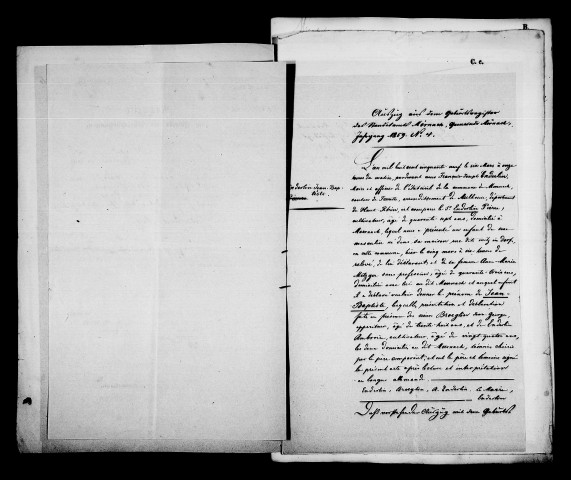 B.
C. c.
Auszug aus dem Geburtsregister
des Standesamts Mörnach, Gemeinde Mörnach,
Jahrgang 1859. No. 4.
L'an mil huit cent cinquante neuf le six Mars à onze
heures du matin, pardevant nous François Joseph Enderlin,
Maire et officier de l'Etat civil de la commune de Moernach,
canton de Ferrette, arrondissement de Mulhouse, département
du Haut Rhin, est comparu le Sr. Enderlin Pierre,
cultivateur, âgé de quarante sept ans, domicilié à
Moernach, lequel nous a présenté un enfant du sexe
masculin né dans sa maison sise dit
en cette commune, hier le cinq mars à six heures de
relevé, de lui déclarant, et de sa femme Anne Marie
Metzger sans profession, âgée de quarante trois ans,
domiciliée avec lui au dit Moernach et auquel enfant
il a déclaré vouloir donner le prénom de Jean-
Baptiste, lesquelles présentation et déclaration
faite en présence de sieur Broeglin Jean George,
appariteur, âgé de trente huit ans, et de Enderlin
Ambroise, cultivateur, âgé de vingt quatre ans,
les deux domiciliés au dit Moernach, témoins choisis
par le père comparant, et ont le père et témoins signé
le présent acte après lecture et interprétation
en langue allemande.
Enderlin, Broeglin, A. Enderlin, le Maire,
Enderlin
Enderlin Jean-Bap-
tiste
Daß vorstehender Auszug mit dem Geburts